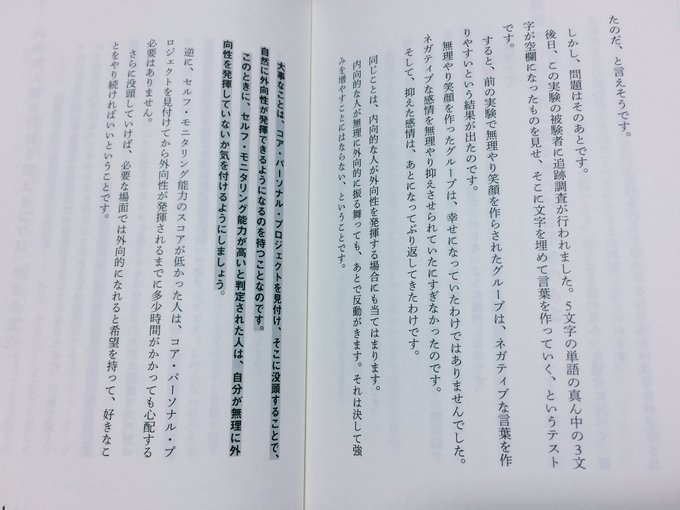 たのだ、と言えそうです。
しかし、問題はそのあとです。
後日、この実験の被験者に追跡調査が行われました。5文字の単語の真ん中の3文
字が空欄になったものを見せ、そこに文字を埋めて言葉を作っていく、というテスト
です。
すると、前の実験で無理やり笑顔を作らされたグループは、ネガティブな言葉を作
りやすいという結果が出たのです。
無理やり笑顔を作ったグループは、幸せになっていたわけではありませんでした。
ネガティブな感情を無理やり抑えさせられていたにすぎなかったのです。
そして、抑えた感情は、あとになってぶり返してきたわけです。
同じことは、内向的な人が外向性を発揮する場合にも当てはまります。
内向的な人が無理に外向的に振る舞っても、あとで反動がきます。それは決して強
みを増やすことにはならない、ということです。
大事なことは、コア・パーソナル・プロジェクトを見付け、そこに没頭することで、
自然に外向性が発揮できるようになるのを待つことなのです。
このときに、セルフ・モニタリング能力が高いと判定された人は、自分が無理に外
向性を発揮していないか気を付けるようにしましょう。
逆に、セルフ・モニタリング能力のスコアが低かった人は、コア・パーソナル・プ
ロジェクトを見付けてから外向性が発揮されるまでに多少時間がかかっても心配する
必要はありません。
さらに没頭していけば、必要な場面では外向的になれると希望を持って、好きなこ
とをやり続ければいいということです。